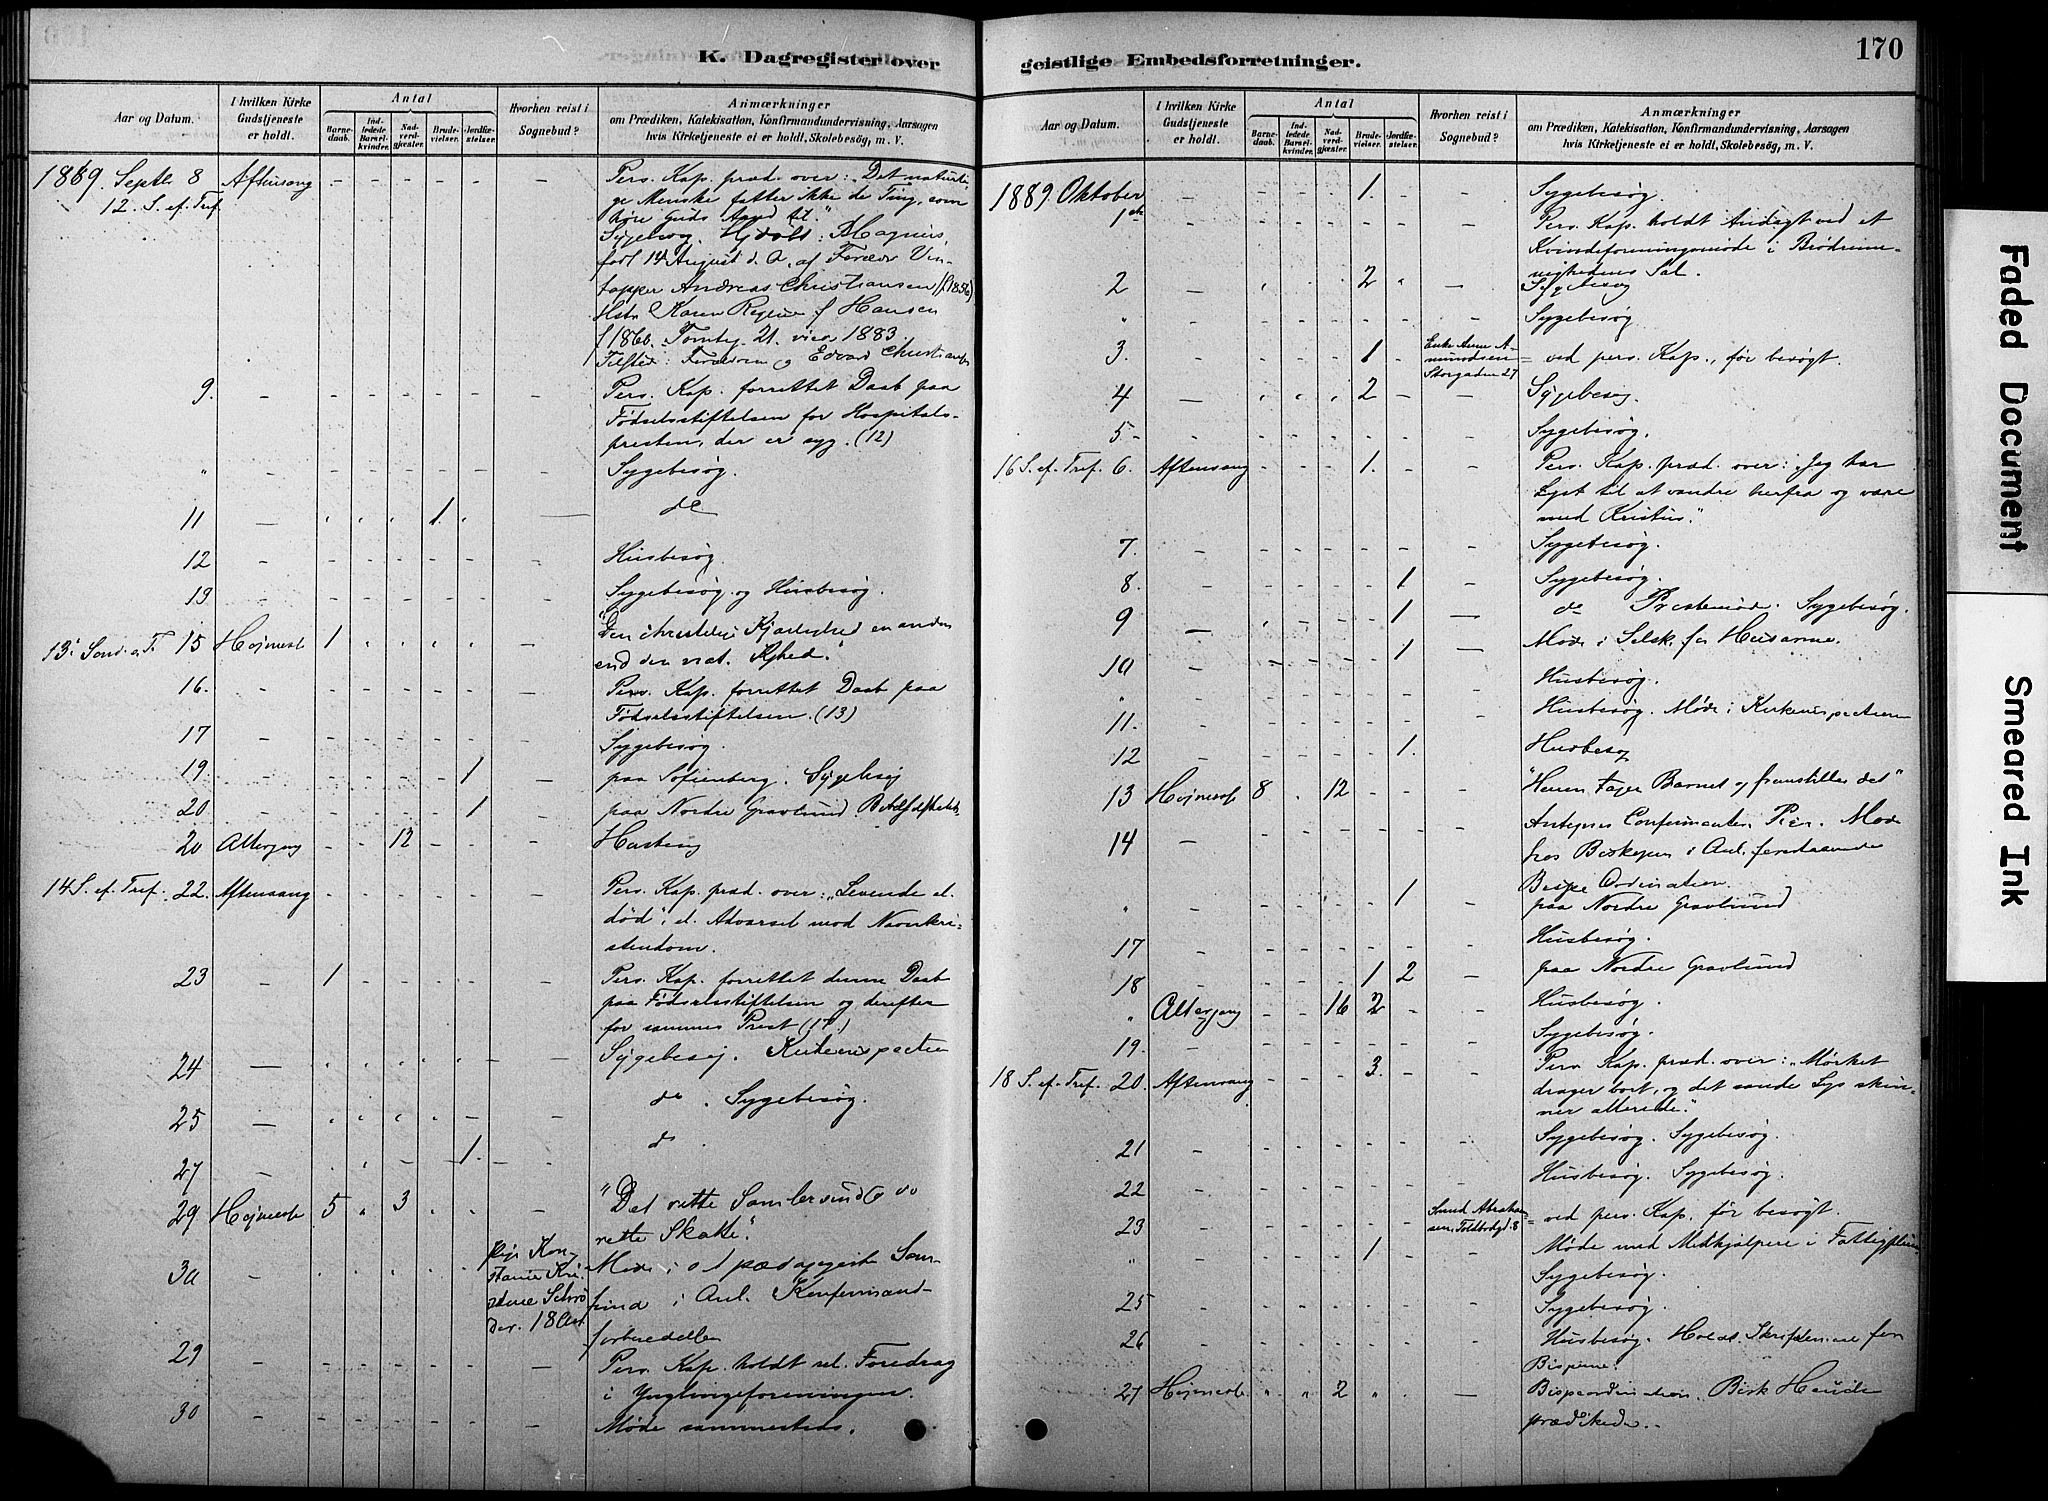 K. Dagregister over
Aar og Datum.
I hvilken Kirke
Gudstjeneste
er holdt.
Antal
Barne-
daab.
Ind-
ledede
Barsel-
kvinder.
Nad-
verd-
gjester.
Brude-
vielser.
Jordfæ-
stelser.
Hvorhen reist i
Sognebud?
Anmærkninger
om Prædiken, Katekisation, Konfirmandundervisning, Aarsagen
hvis Kirketjeneste ei er holdt, Skolebesøg, m. V.
1889. Septbr 8 Aftensang - - - - - - Pers. Kap. præd. over: "Det naturli-
12. S. ef. Tref. ge Menske fatter ikke de Ting, som
høre Guds Aand til."
Sygebesøg. Hjdøbt: Magnus,
født 14 August d. A. af Forældre Vin-
tapper Andreas Christiansen (f. 1856)
Hstr Karen Regine f Hansen
f 1860. Torvbg. 21. viet 1883
Tilsted: Forældrene og Edvard Christiansen
9. - - - - - - - Pers. Kap. forrettet Daab paa
Fødselsstiftelsen for Hospitals-
presten, der er syg. (12)
" - - - - - - - Sygebesøg.
11 - - - - 1. - - do
12 - - - - - - - Husbesøg
13 - - - - - - - Sygebesøg og Husbesøg.
13: Sond. e. T. 15 Højmesse 1 - - - - - "Den christelige Kjærlighed en anden
end den nat. Kjhed."
16. - - - - - - - Pers. Kap. forrettet Daab paa
Fødselsstiftelsen. (13)
17 - - - - - - - Sygebesøg.
19. - - - - - 1 - paa Sofienberg. Sygebesøg
20 - - - - - 1 - paa Nordre Gravlund.
20 Altergang - - 12 - - -
14 S. ef. Tref. 22. Aftensang - - - - - - Pers. Kap. præd. over: "Levende el.
død", el. Advarsel mod Navnkri-
stendom.
23 - 1 - - - - - Pers. Kap. forrettet denne Daab
paa Fødselsstiftelsen og derefter
for sammes Prest (17.)
24 - - - - - - - Sygebesøg. Kirkeinspection
25 - - - - - - - do. Sygebesøg.
27 - - - - - 1. - do.
29 Højmesse 5 - 3 - - - "Det rette Samlersind
rette Skatte."
30 - - - - - - Møde i det pædagogiske Sam-
fund i Anl. Konfirmand-
forberedelsen
29 - - - - - - - Pers. Kap. holdt rel. Foredrag
i Ynglingeforeningen.
30 - - - - - - - Møde sammesteds.
geistlige Embedsforretninger.
170
Aar og Datum.
I hvilken Kirke
Gudstjeneste
er holdt.
Antal
Barne-
daab.
Ind-
ledede
Barsel-
kvinder.
Nad-
verd-
gjester.
Brude-
vielser.
Jordfæ-
stelser.
Hvorhen reist i
Sognebud?
Anmærkninger
om Prædiken, Katekisation, Konfirmandundervisning, Aarsagen
hvis Kirketjeneste ei er holdt, Skolebesøg, m. V.
1889. Oktober - - - - 1. - - Sygebesøg.
1ste - - - - - - - Pers. Kap. holdt Andagt ved et
Kvindeforeningsmøde i Brødreme-
nighedens Sal.
2 - - - - 2 - - Sygebesøg
" - - - - - - - Sygebesøg
3. - - - - 1 - Enke Anne A-
mundsen
Storgaden 27 = ved pers. Kap., før besøgt.
4 - - - - 2 - - Sygebesøg.
5 - - - - - - - Sygebesøg.
16 S. ef. Tref. 6. Aftensang - - - 1. - - Pers. Kap. præd. over: "Jeg har
Lyst til at vandre herfra og være
med Kristus."
7. - - - - - - - Sygebesøg.
8. - - - - - 1 - Sygebesøg.
9 - - - - - 1 - do Prestemøde. Sygebesøg.
10 - - - - - 1 - Møde i Selsk. for Husarme.
" - - - - - - - Husbesøg.
11. - - - - - - - Husbesøg. Møde i Kirkeinspectionen
12 - - - - - 1. - Husbesøg
13 Højmesse 8 - 12 - - - "Herren tager Barnet og fremstiller det"
14 - - - - - - - Antegnes Confirmanter. Møde
hos Biskopen i Anl. forestaaende
Bispe Ordination.
" - - - - - 1 - paa Nordre Gravlund
17 - - - - - - - Husbesøg.
18 - - - - 1 2 - paa Nordre Gravlund
" Altergang - - 16 2 - - Husbesøg.
19. - - - - - - - Sygebesøg.
18 S. ef. Tref. 20. Aftensang - - - 3. - - Pers. Kap. præd. over: "Mørket
drager bort, og det sande Lys skin-
ner allerede."
21 - - - - - - - Sygebesøg. Sygebesøg.
22 - - - - - - - Husbesøg. Sygebesøg.
23 - - - - - - Abraham-
sen, Toldbodgd. 8 = ved pers. Kap. før besøgt.
" - - - - 1 - - Møde med Medhjælpere i Fattigpleien
Sygebesøg.
25 - - - - - - - Sygebesøg.
26 - - - - - - - Husbesøg. Holdt Skriftemaal for
Bisperne.
27 Højmesse - - 2 - - - Bispeordination. Bisk Heuch
prædikede.
Faded Document
Smeared Ink